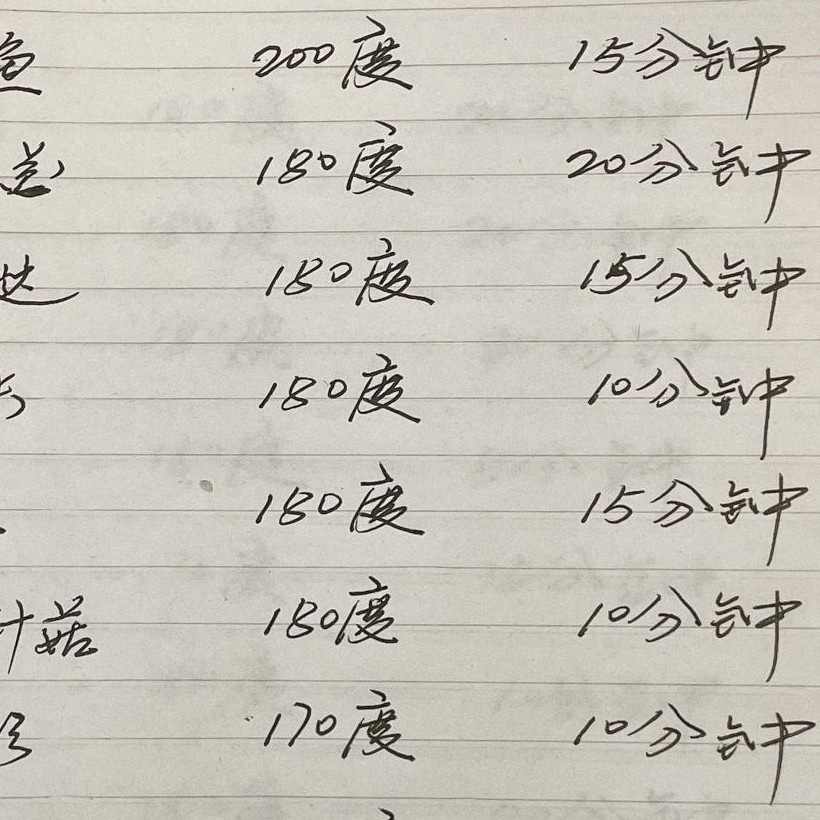 鱼 200度 15分钟
180度 20分钟
挞 180度 15分钟
180度 10分钟
180度 15分钟
针菇 180度 10分钟
170度 10分钟